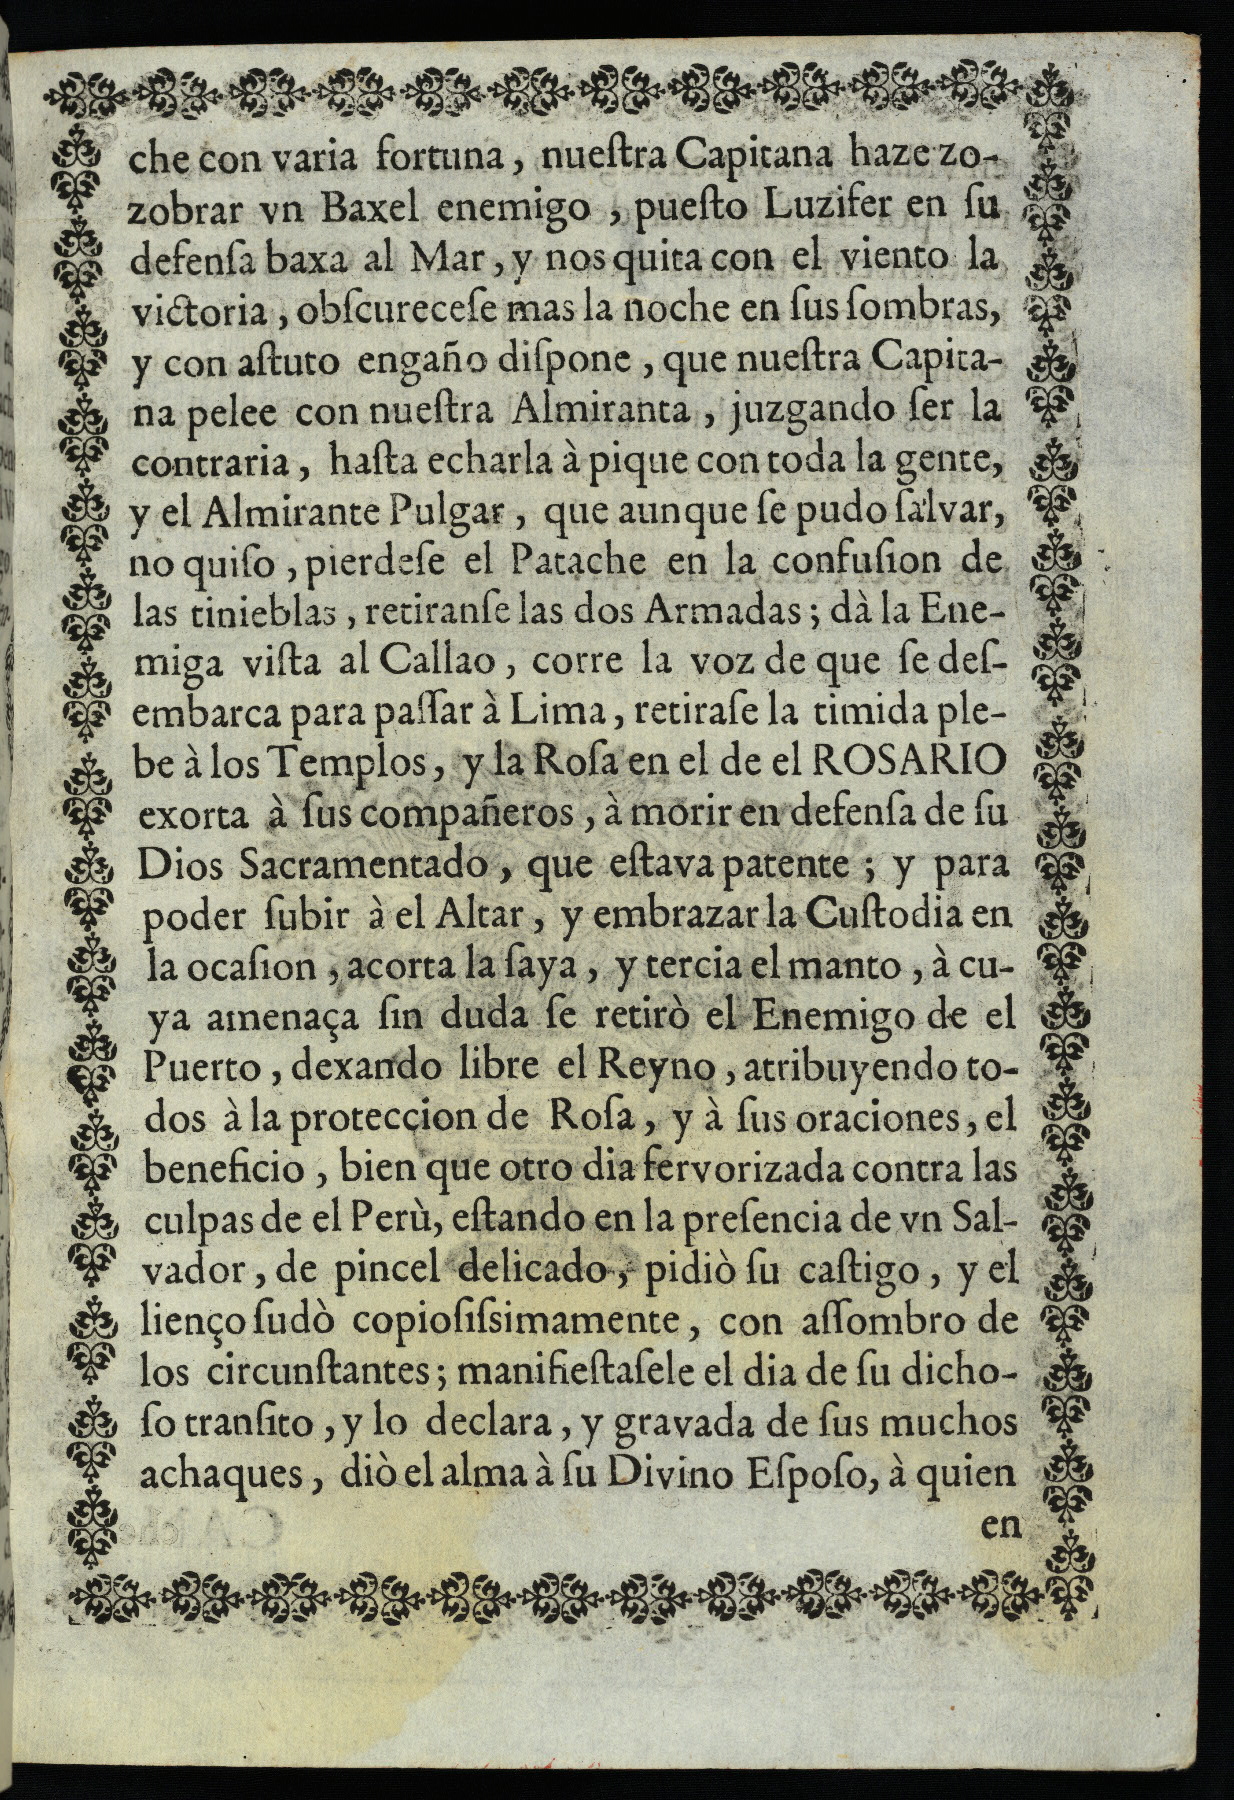 che con varia fortuna, nueſtra Capitana haze zo-
zobrar vn Baxel enemigo, pueſto Luzifer en ſu
defenſa baxa al Mar, y nos quita con el viento la
victoria, obſcureceſe mas la noche en ſus ſombras,
y con aſtuto engaño diſpone, que nueſtra Capita-
na pelee con nueſtra Almiranta, juzgando ſer la
contraria, haſta echarla à pique con toda la gente,
y el Almirante Pulgar, que aunque ſe pudo ſalvar,
no quiſo, pierdeſe el Patache en la confuſion de
las tinieblas, retiranſe las dos Armadas; dà la Ene-
miga viſta al Callao, corre la voz de que ſe deſ-
embarca para paſſar à Lima, retiraſe la timida ple-
be à los Templos, y la Roſa en el de el ROSARIO
exorta à ſus compañeros, à morir en defenſa de ſu
Dios Sacramentado, que eſtava patente; y para
poder ſubir à el Altar, y embrazar la Cuſtodia en
la ocaſion, acorta la ſaya, y tercia el manto, à cu-
ya amenaça ſin duda ſe retirò el Enemigo de el
Puerto, dexando libre el Reyno, atribuyendo to-
dos à la proteccion de Roſa, y à ſus oraciones, el
beneficio, bien que otro dia fervorizada contra las
culpas de el Perù, eſtando en la preſencia de vn Sal-
vador, de pincel delicado, pidiò ſu caſtigo, y el
lienço ſudò copioſiſsimamente, con aſſombro de
los circunſtantes; manifieſtaſele el dia de ſu dicho-
ſo tranſito, y lo declara, y gravada de ſus muchos
achaques, diò el alma à ſu Divino Eſpoſo, à quien
en